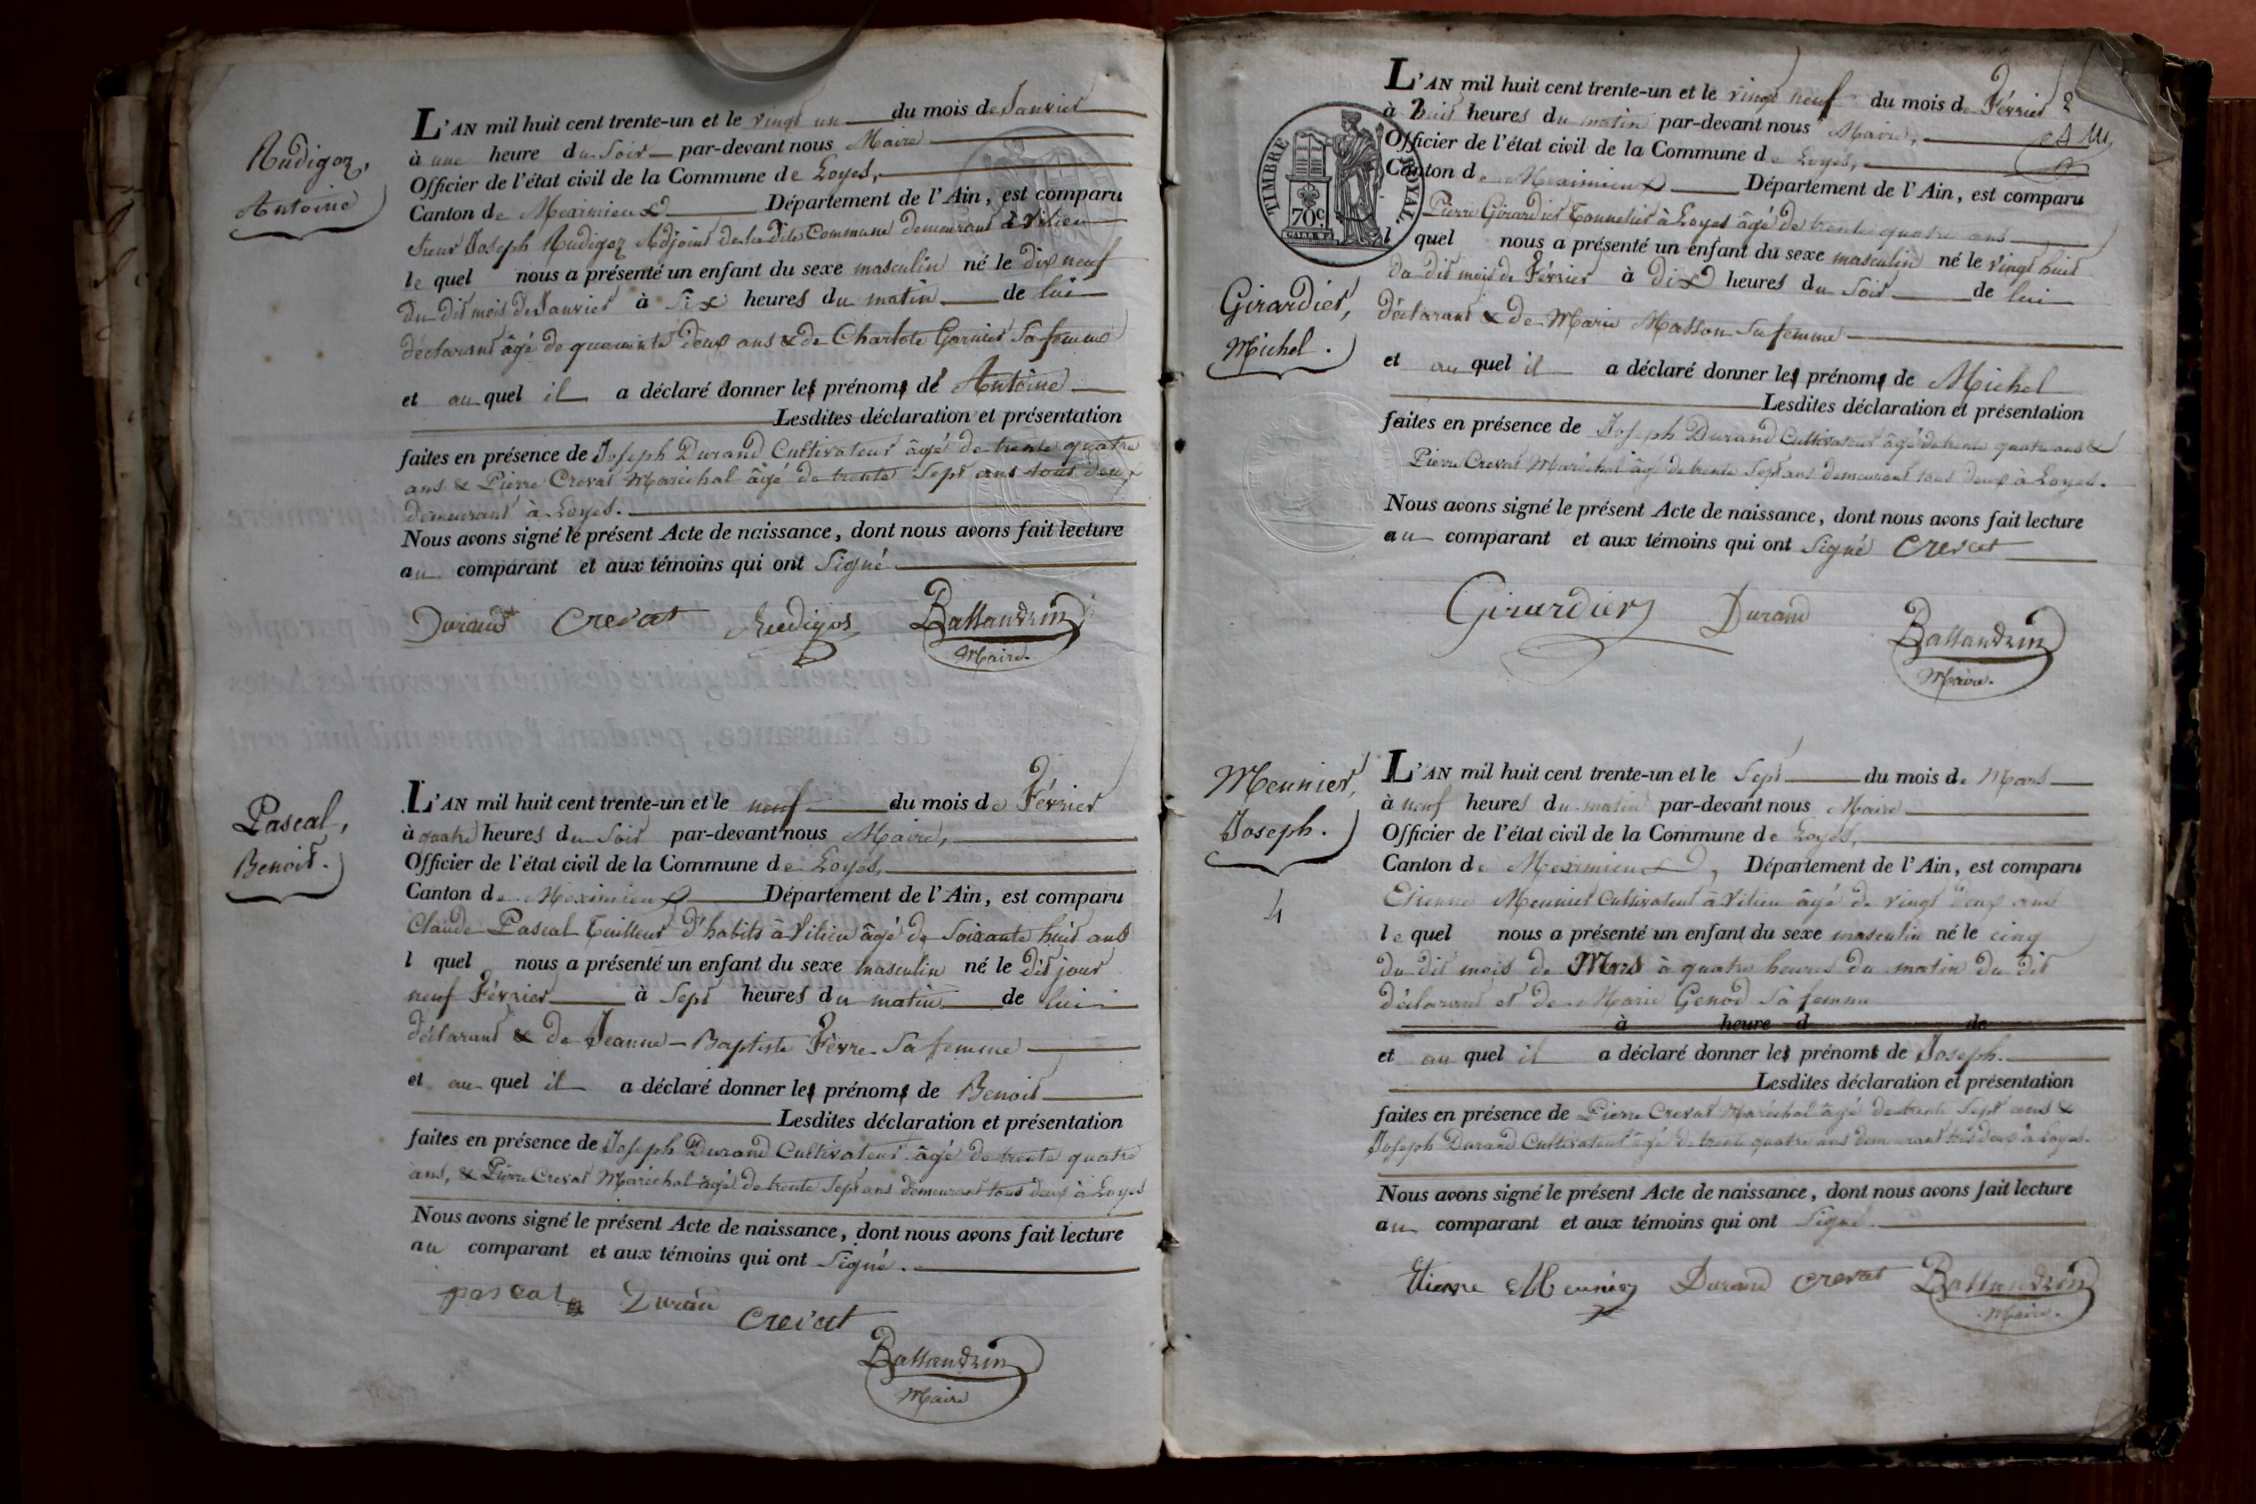 Rudigoz,
Antoine
L'AN mil huit cent trente-un et le vingt un du mois de Janvier
à une heure du Soir par-devant nous Maire
Officier de l'état civil de la Commune de Loyes,
Canton de Meximieux Département de l'Ain, est comparu
Sieur Joseph Rudigoz Adjoint de la dite Commune demeurant à Vilieu
le quel nous a présenté un enfant du sexe masculin né le dix neuf
du dit mois de Janvier à Six heures du matin de lui
déclarant âgé de quarante deux ans & de Charlote Garnier Sa femme
et au quel il a déclaré donner les prénoms de Antoine
Lesdites déclaration et présentation
faites en présence de Joseph Durand Cultivateur âgé de trente quatre
ans & Pierre Crevat Maréchal âgé de trente Sept ans tous deux
demeurant à Loyes.
Nous avons signé le présent Acte de naissance, dont nous avons fait lecture
au comparant et aux témoins qui ont Signé
Durand Crevat Rudigoz Ballandrin
Maire.
Pascal,
Benoit.
L'AN mil huit cent trente-un et le neuf du mois de Février
à quatre heures du Soir par-devant nous Maire,
Officier de l'état civil de la Commune de Loyes,
Canton de Meximieux Département de l'Ain, est comparu
Claude Pascal Tailleur d'habits à Vilieu âgé de Soixante huit ans
l quel nous a présenté un enfant du sexe masculin né le dit jour
neuf Février à Sept heures du matin de lui
déclarant & de Jeanne-Baptiste Fèvre Sa femme
et au quel il a déclaré donner les prénoms de Benoit
Lesdites déclaration et présentation
faites en présence de Joseph Durand Cultivateur âgé de trente quatre
ans, & Pierre Crevat Maréchal âgé de trente Sept ans demeurant tous deux à Loyes
Nous avons signé le présent Acte de naissance, dont nous avons fait lecture
au comparant et aux témoins qui ont Signé.
pascal Durand Crevat
Ballandrin
Maire
2
L'AN mil huit cent trente-un et le vingt neuf du mois de Février
à huit heures du matin par-devant nous Maire,
Officier de l'état civil de la Commune de Loyes,
Canton de Meximieux Département de l'Ain, est comparu
TIMBRE ROYAL
70c
Pierre Girardier Tonnelier à Loyes âgé de trente quatre ans
l quel nous a présenté un enfant du sexe masculin né le vingt huit
du dit mois de Février à dix heures du Soir de lui
Girardier,
Michel.
déclarant & de Marie Masson Sa femme
et au quel il a déclaré donner les prénoms de Michel
Lesdites déclaration et présentation
faites en présence de Joseph Durand Cultivateur âgé de trente quatre ans &
Pierre Crevat Maréchal âgé de trente Sept ans demeurant tous deux à Loyes.
Nous avons signé le présent Acte de naissance, dont nous avons fait lecture
au comparant et aux témoins qui ont Signé Crevat
Girardier Durand Ballandrin
Maire.
Meunier,
Joseph.
4
L'AN mil huit cent trente-un et le Sept du mois de Mars
à neuf heures du matin par-devant nous Maire
Officier de l'état civil de la Commune de Loyes,
Canton de Meximieux, Département de l'Ain, est comparu
Etienne Meunier Cultivateur à Vilieu âgé de vingt deux ans
le quel nous a présenté un enfant du sexe masculin né le cinq
du dit mois de Mars à quatre heures du matin du dit
déclarant et de Marie Genod Sa femme
à heure d de
et au quel il a déclaré donner les prénoms de Joseph.
Lesdites déclaration et présentation
faites en présence de Pierre Crevat Maréchal âgé de trente Sept ans &
Joseph Durand Cultivateur âgé de trente quatre ans demeurant tous deux à Loyes.
Nous avons signé le présent Acte de naissance, dont nous avons fait lecture
au comparant et aux témoins qui ont Signé.
Etienne Meunier Durand Crevat Ballandrin
Maire.